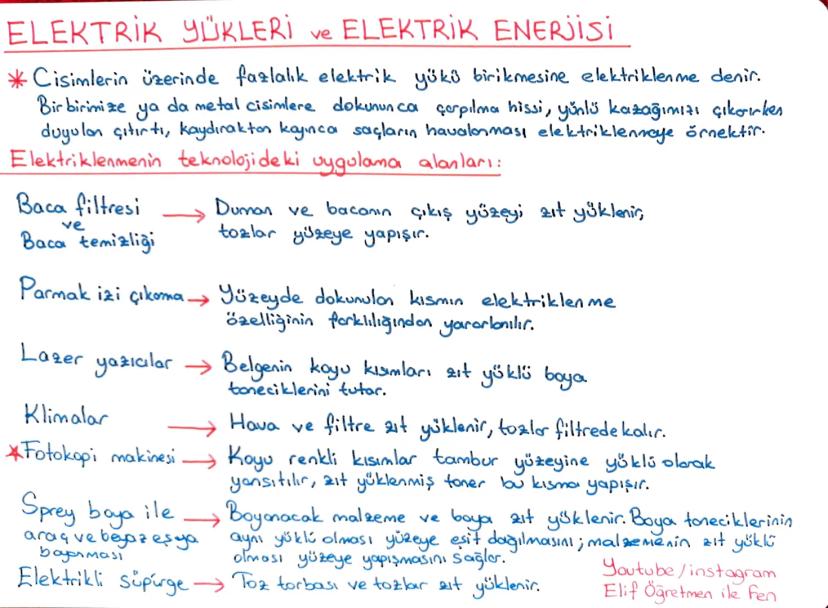 ELEKTRİK YÜKLERİ ve ELEKTRİK ENERJİSİ
* Cisimlerin üzerinde fazlalık elektrik yükü birikmesine elektriklenme denir.
Birbirimize ya da metal cisimlere dokununca çarpılma hissi, yünlü kazağımızı çıkarırken
duyulan çıtırtı, kaydıraktan kayınca saçların havalanması elektriklenmeye örnektir.
Elektriklenmenin teknolojideki uygulama alanları:
Baca filtresi ve Baca temizliği → Duman ve bacanın çıkış yüzeyi zıt yüklenir,
tozlar yüzeye yapışır.
Parmak izi çıkarma → Yüzeyde dokunulan kısmın elektriklenme
özelliğinin farklılığından yararlanılır.
Lazer yazıcılar → Belgenin koyu kısımları zıt yüklü boya
taneciklerini tutar.
Klimalar → Hava ve filtre zıt yüklenir, tozlar filtrede kalır.
* Fotokopi makinesi → Koyu renkli kısımlar tambur yüzeyine yüklü olarak
yansıtılır, zıt yüklenmiş toner bu kısma yapışır.
Sprey boya ile → Boyanacak malzeme ve boya zıt yüklenir. Boya taneciklerinin
araç ve beyaz eşya aynı yüklü olması yüzeye eşit dağılmasını; malzemenin zıt yüklü
boyanması olması yüzeye yapışmasını sağlar.
Elektrikli süpürge → Toz torbası ve tozlar zıt yüklenir.
Youtube/instagram
Elif Öğretmen ile Fen